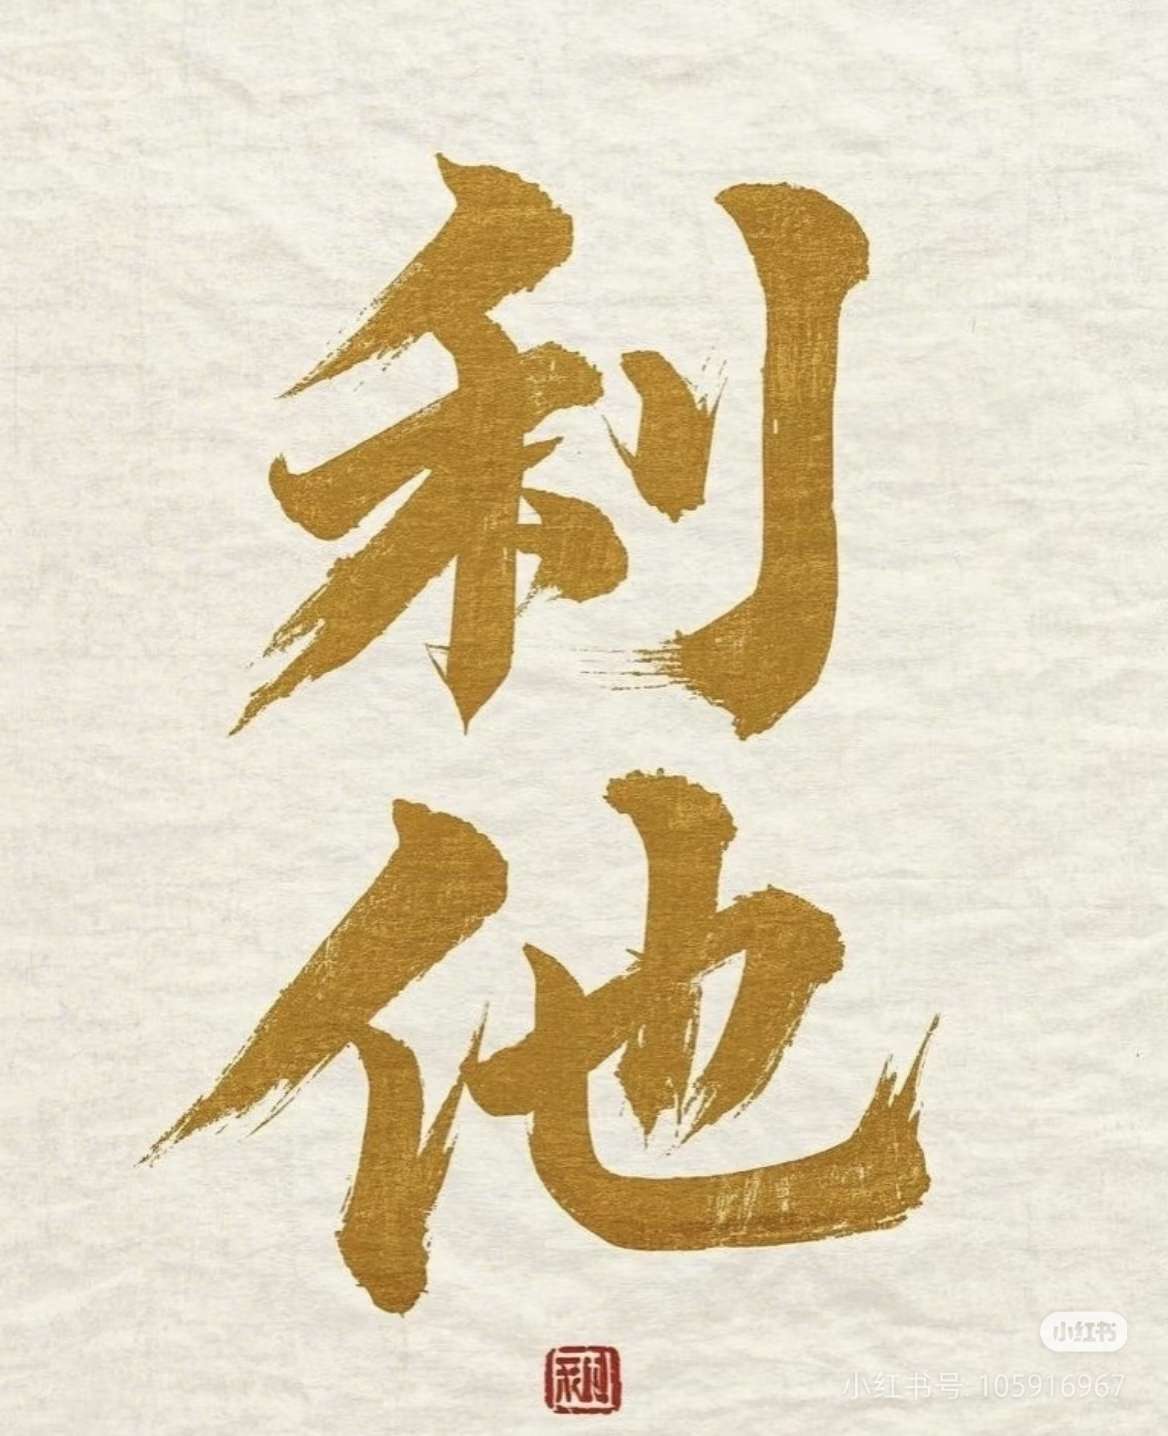 利
他
小红书
小红书号: 105916967